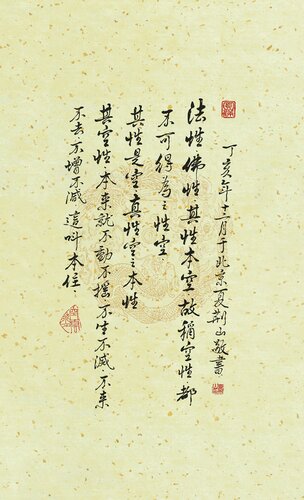 丁亥年十二月于北京夏荆山敬書
法性佛性其性本空故稱空性都
不可得為之性空
其性是空真性空之本性
其空性本来就不動不摇不生不滅不来
不去不增不减這叫本住